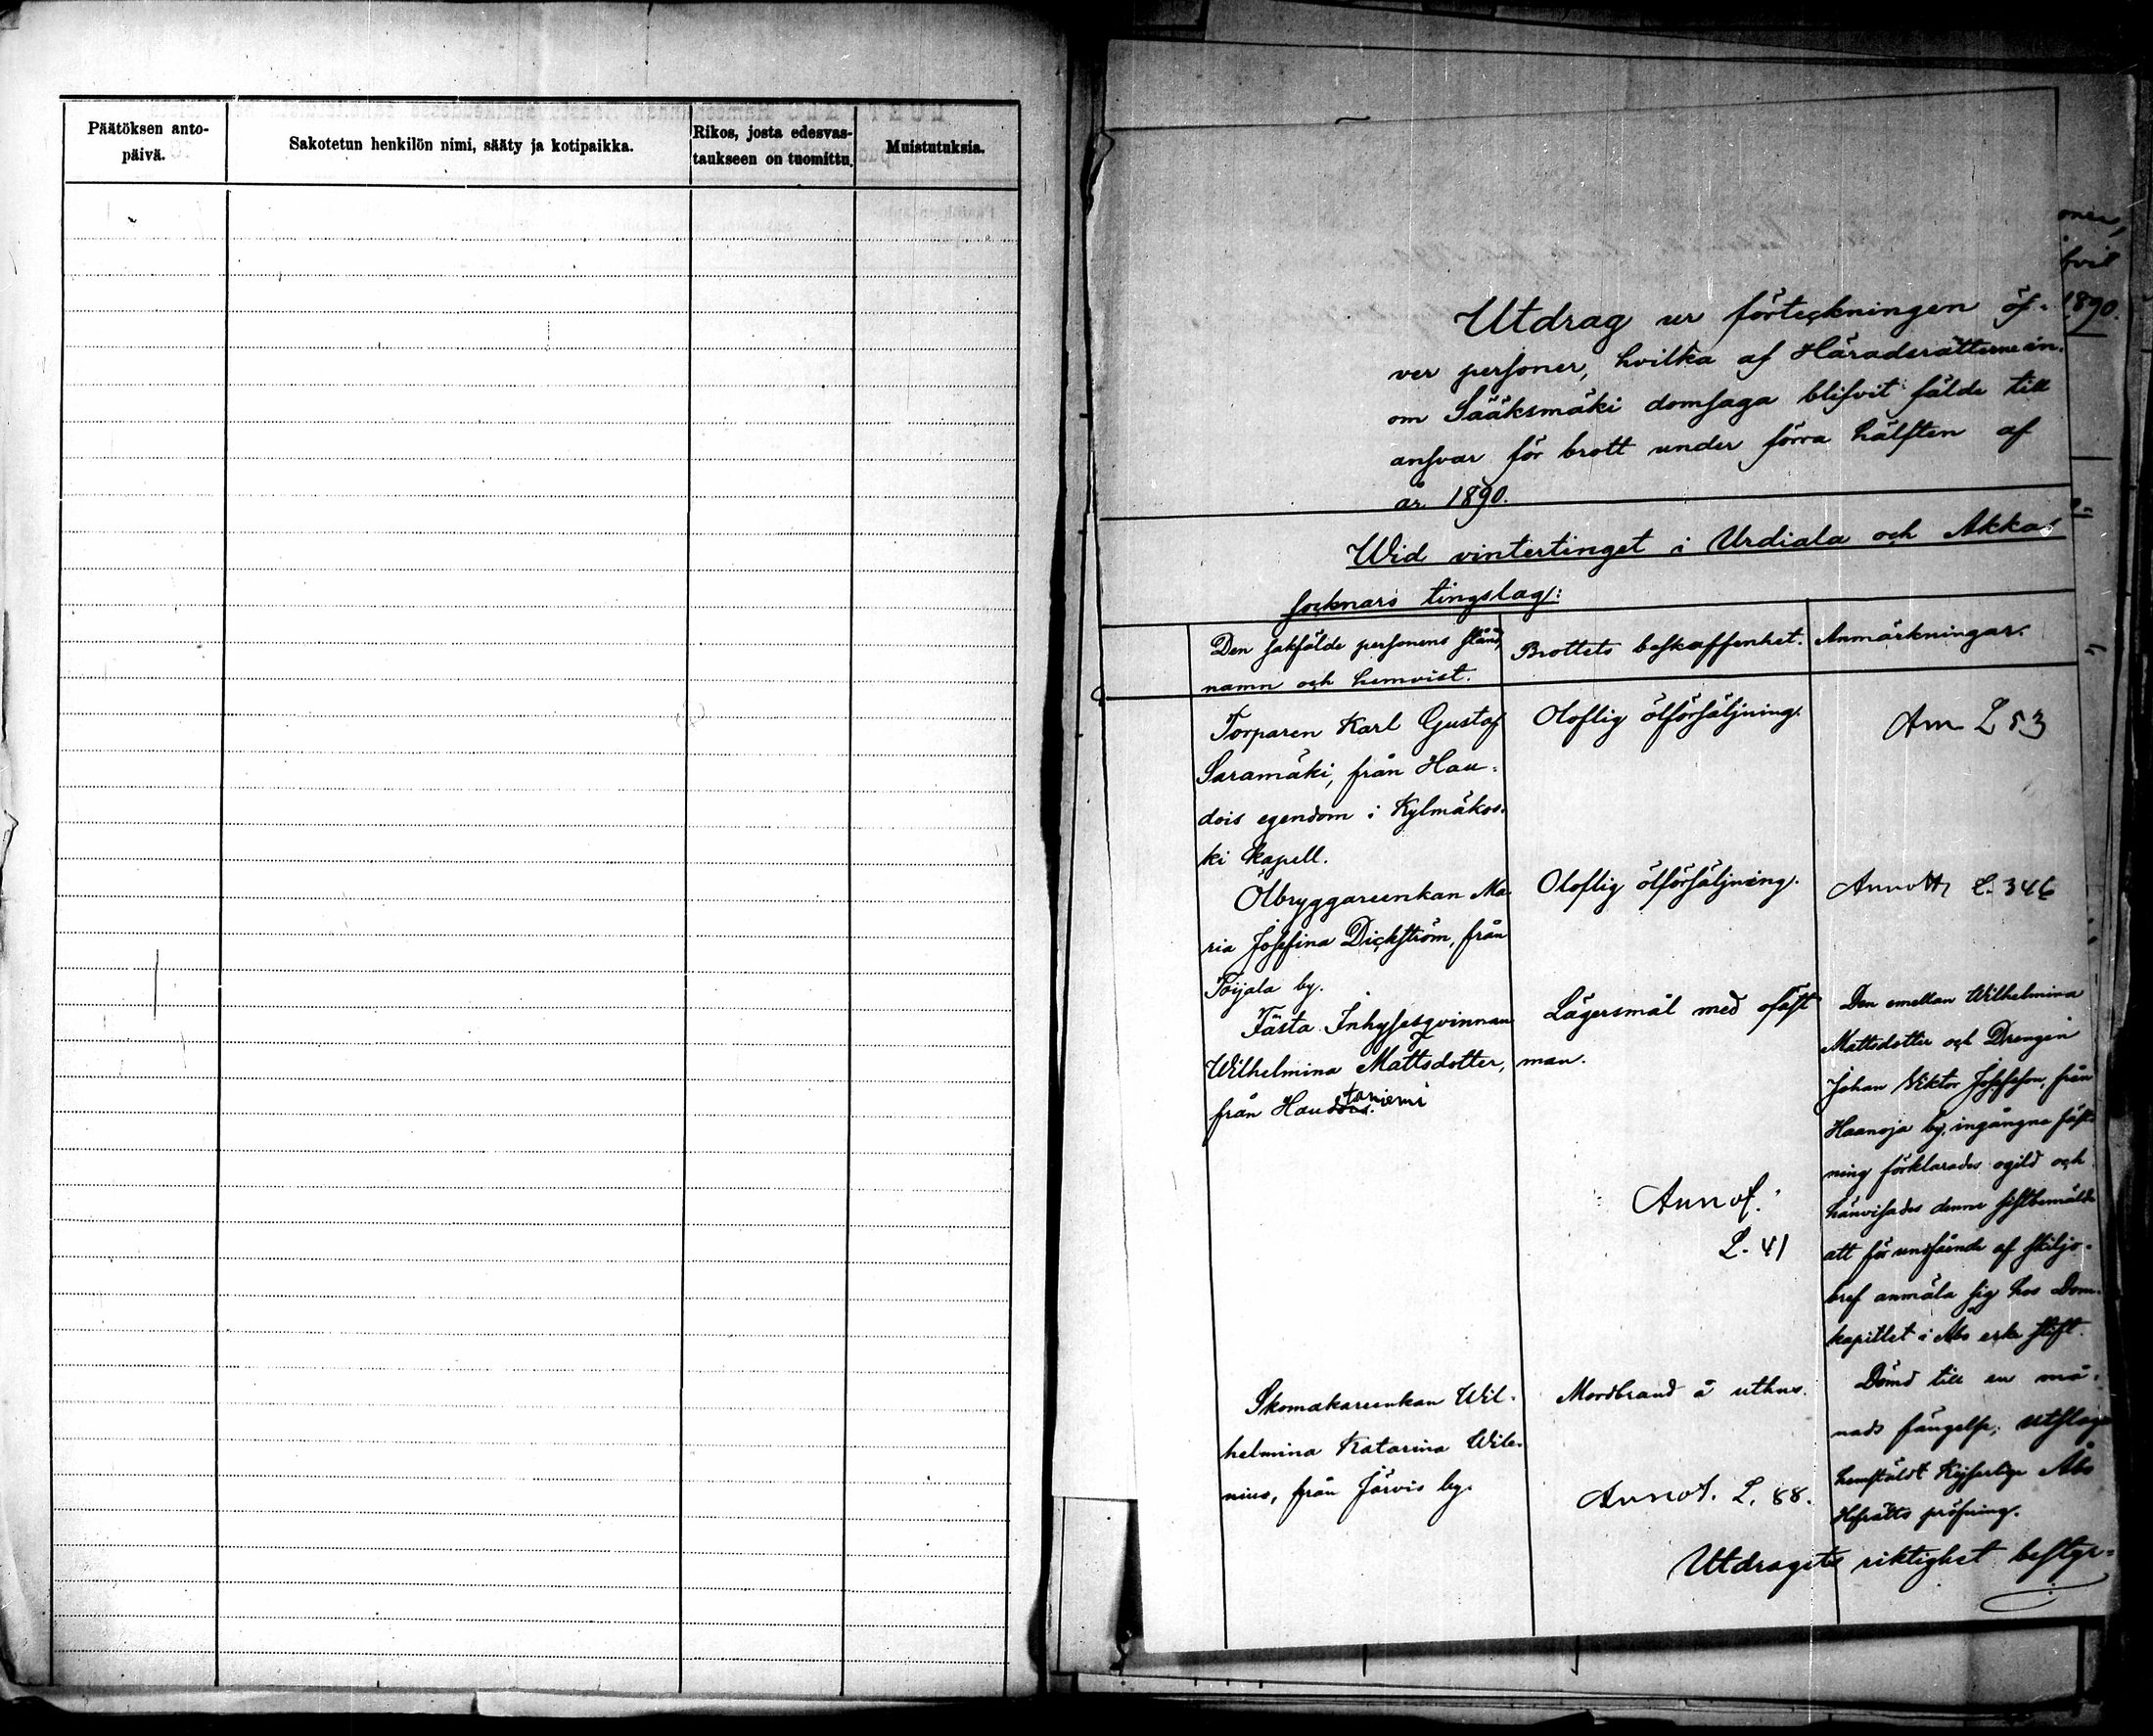 Päätöksen anto-
päivä.
Sakotetun henkilön nimi, sääty ja kotipaikka.
Rikos, josta edesvas-
taukseen on tuomittu.
Muistutuksia.
Utdrag ur förteckningen öf-
ver personer, hvilka af Häradsrätterne in-
om Sääksmäki domsaga blifvit fälde till
ansvar för brott under förra hälften af
år 1890.
1890.
Wid vintertinget i Urdiala och Akkas
socknars tingslag:
Den sakfälde personens stånd,
namn och hemvist.
Brottets beskaffenhet.
Anmärkningar.
Torparen Karl Gustaf
Saramäki, från Hau-
dois egendom i Kylmäkos-
ki kapell.
Oloflig ölförsäljning.
Ann L 53
Ölbryggareenkan Ma-
ria Josefina Dickström, från
Toijala by.
Oloflig ölförsäljning.
Annott L. 346
Fästa Inhysesqvinnan
Wilhelmina Mattsdotter,
från Hautaniemi
Lägersmål med ofäst
man.
Annot.
L. 41
Den emellan Wilhelmina
Mattsdotter och Drengen
Johan Viktor Josefsson, från
Haanoja by, ingångna fäst-
ning förklarades ogild och
hänvisades denne sistbemälde
att för undfående af skiljo-
bref anmäla sig hos Dom-
kapitlet i Åbo erke stift.
Skomakareenkan Wil-
helmina Katarina Wile-
nius, från Järvis by.
Mordbrand å uthus.
Annot. L. 88.
Dömd till en må-
nads fängelse; utslaget
hemstäldt Kejserlige Åbo
Hofrätts pröfning.
Utdragets riktighet bestyr-